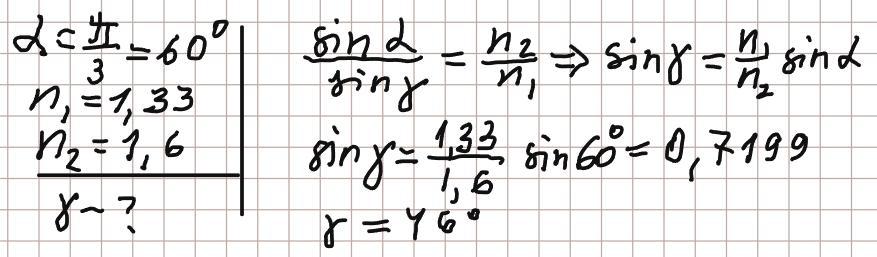 α = π/3 = 60°
n₁ = 1,33
n₂ = 1,6
γ - ?
sin α / sin γ = n₂ / n₁ ⇒ sin γ = n₁/n₂ sin α
sin γ = 1,33/1,6 sin 60° = 0,7199
γ = 46°